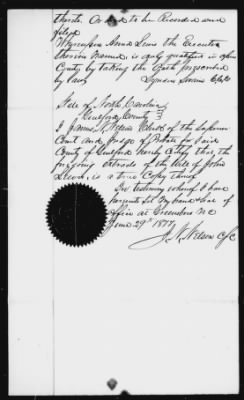 thereto. Ordered to be Recorded and
filed
Whereupon Anna Lewis the Executrix
therein named is duly qualified in open
County by taking the Oath prescribed
by law
State of North Carolina
Guilford County
Clerk of the Superior
Court and Judge of Probate for said
County of Guilford hereby Certify that, the
foregoing Extracts of the Will of John
Lewis, is a true Copy thereof
In testimony whereof I have
hereunto Set my hand & Seal of
office at Greensboro NC
June 29th 1877
J. N. Nelson CSC